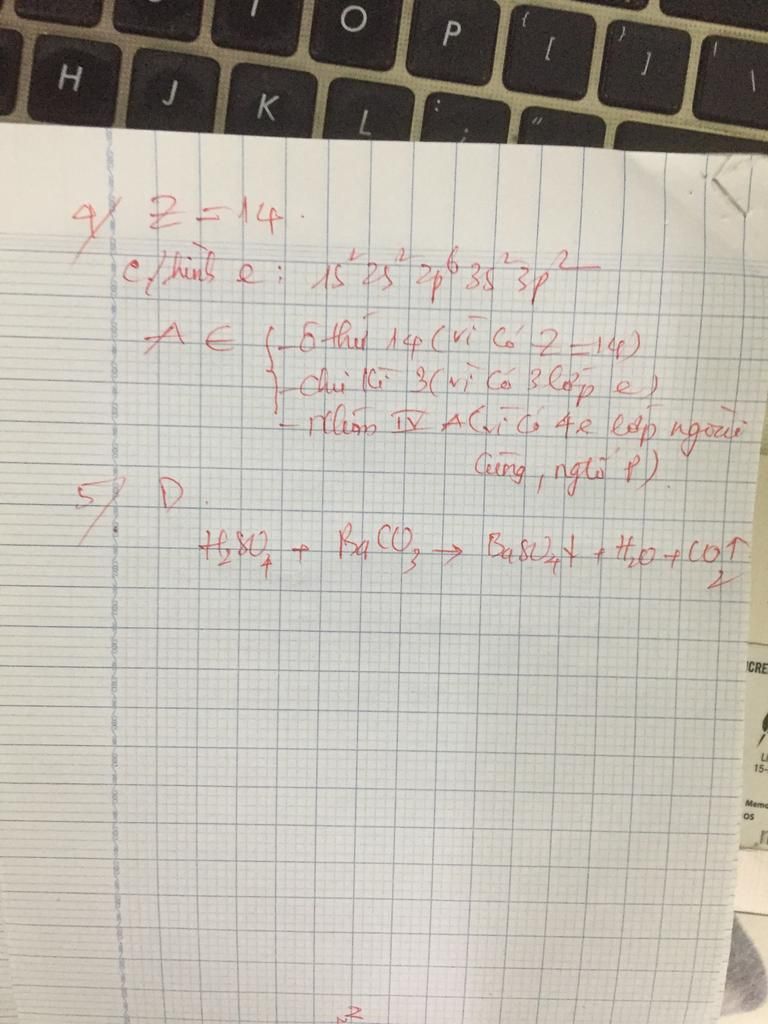 O P { [ } ] | \
H J K L : ; "
4/ Z = 14.
c/hình e: 1s² 2s² 2p⁶ 3s² 3p²
A ∈ { - ô thứ 14 (vì có Z = 14)
- chu kì 3 (vì có 3 lớp e)
- nhóm IV A (vì có 4e lớp ngoài
cùng, ngtố p)
5/ D.
H₂SO₄ + BaCO₃ → BaSO₄↓ + H₂O + CO₂↑
ICRE
15-
Memo
os